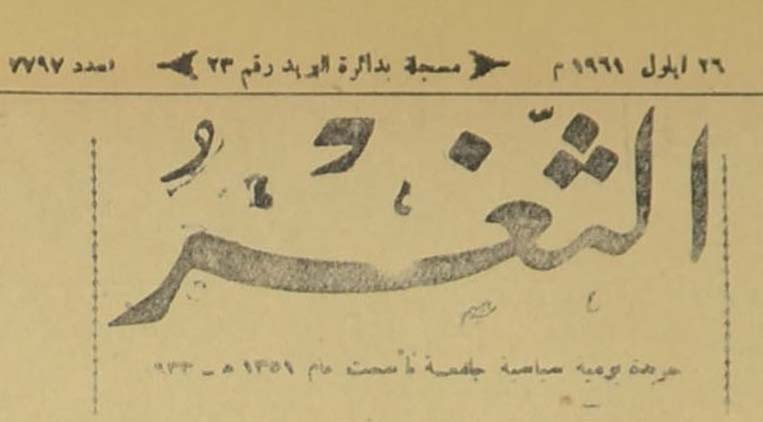 ٢٦ ايلول ١٩٦١ م مسجلة بدائرة البريد رقم ٢٣ عدد ٧٧٩٧
الثَّغْرُ
جريدة يومية سياسية جامعة تأسست عام ١٣٥١ هـ - ٩٣٣